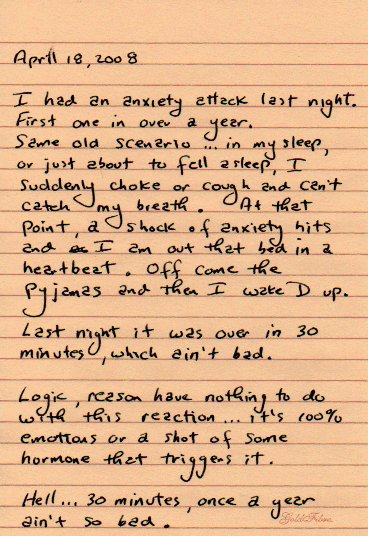 April 18, 2008
I had an anxiety attack last night.
First one in over a year.
Same old scenario ... in my sleep,
or just about to fall asleep, I
suddenly choke or cough and can't
catch my breath. At that
point, a shock of anxiety hits
and I am out that bed in a
heartbeat. Off come the
pyjamas and then I wake D up.
Last night it was over in 30
minutes, which ain't bad.
Logic, reason have nothing to do
with this reaction ... it's 100%
emotions or a shot of some
hormone that triggers it.
Hell ... 30 minutes, once a year
ain't so bad.
Gold Fibre